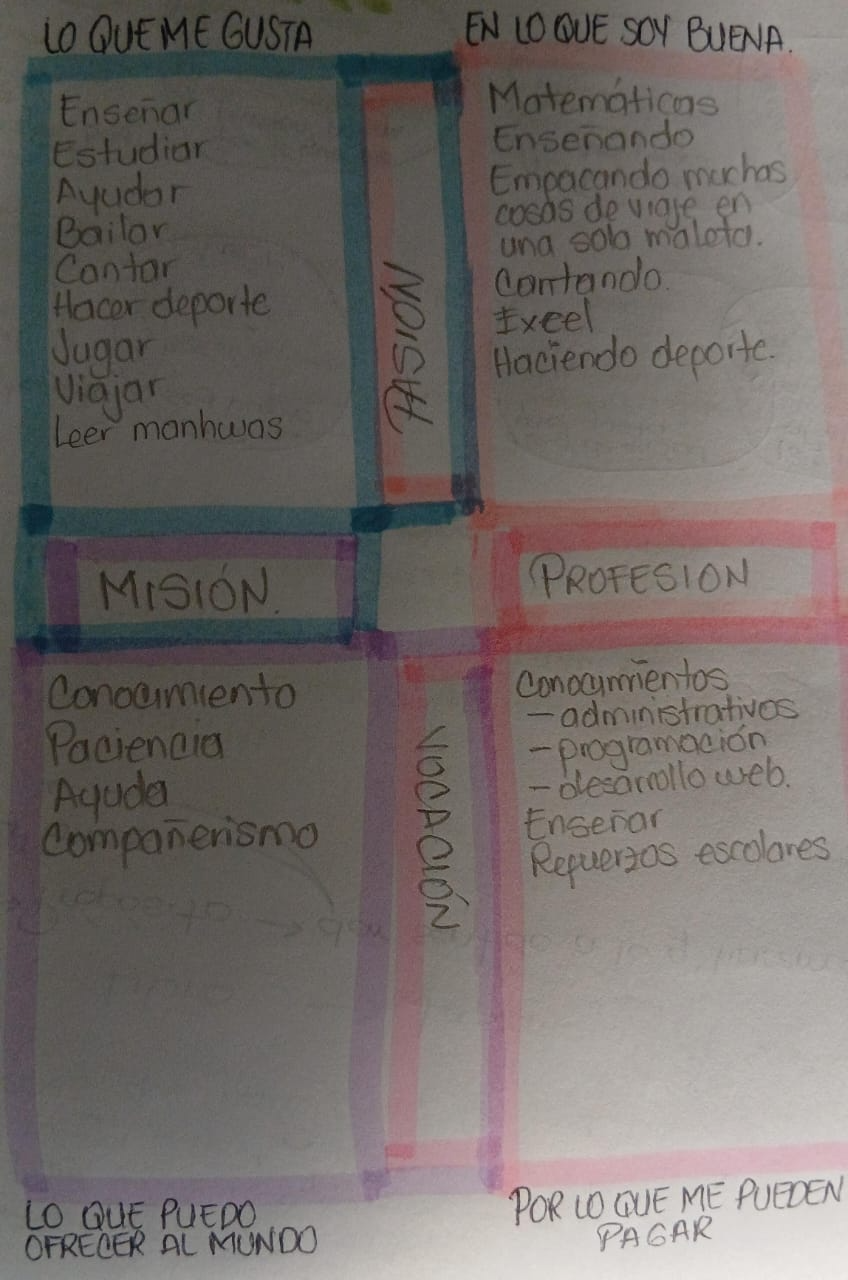 LO QUE ME GUSTA
Enseñar
Estudiar
Ayudar
Bailar
Cantar
Hacer deporte
Jugar
Viajar
Leer manhwas
PASIÓN
EN LO QUE SOY BUENA.
Matemáticas
Enseñando
Empacando muchas
cosas de viaje en
una sola maleta.
Cantando.
Excel
Haciendo deporte.
MISIÓN.
PROFESION
Conocimiento
Paciencia
Ayuda
Compañerismo
LO QUE PUEDO
OFRECER AL MUNDO
VOCACIÓN
Conocimientos
- administrativos
- programación
- desarrollo web.
Enseñar
Refuerzos escolares
POR LO QUE ME PUEDEN
PAGAR